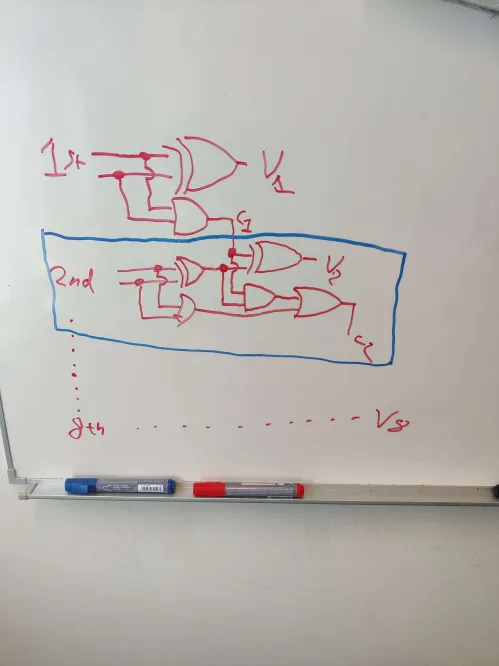 1st V1
C1
2nd V2
C2
8th V8